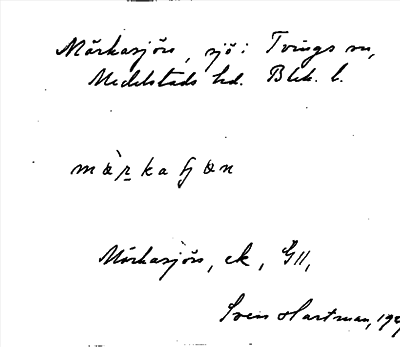 Mörkasjön, sjö i Tvings sn,
Medelstads hd. Blek. l.
mör̲kaʃön
Mörkasjön, ek, GII,
Sven Hartman, 19